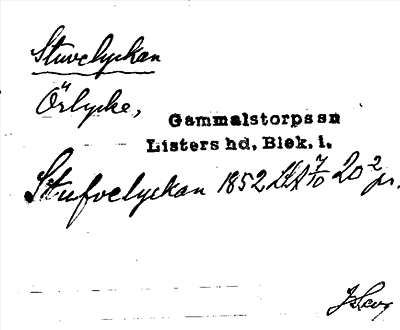 Stuvelyckan
Örlycke,
Gammalstorps sn
Listers hd, Blek. l.
Stufvelyckan 1852 LSA 20